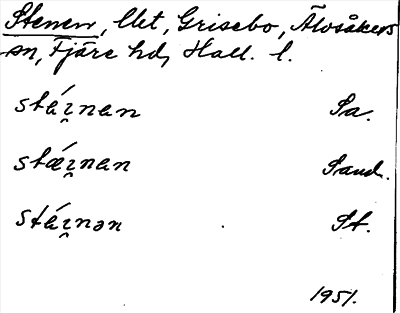 Stenen, llet, Grisebo, Älvsåkers
sn, Fjäre hd, Hall. l.
stáɪ̯nan Sa.
stǽɪ̯nan Sand.
stáɪ̯nən St.
1951.